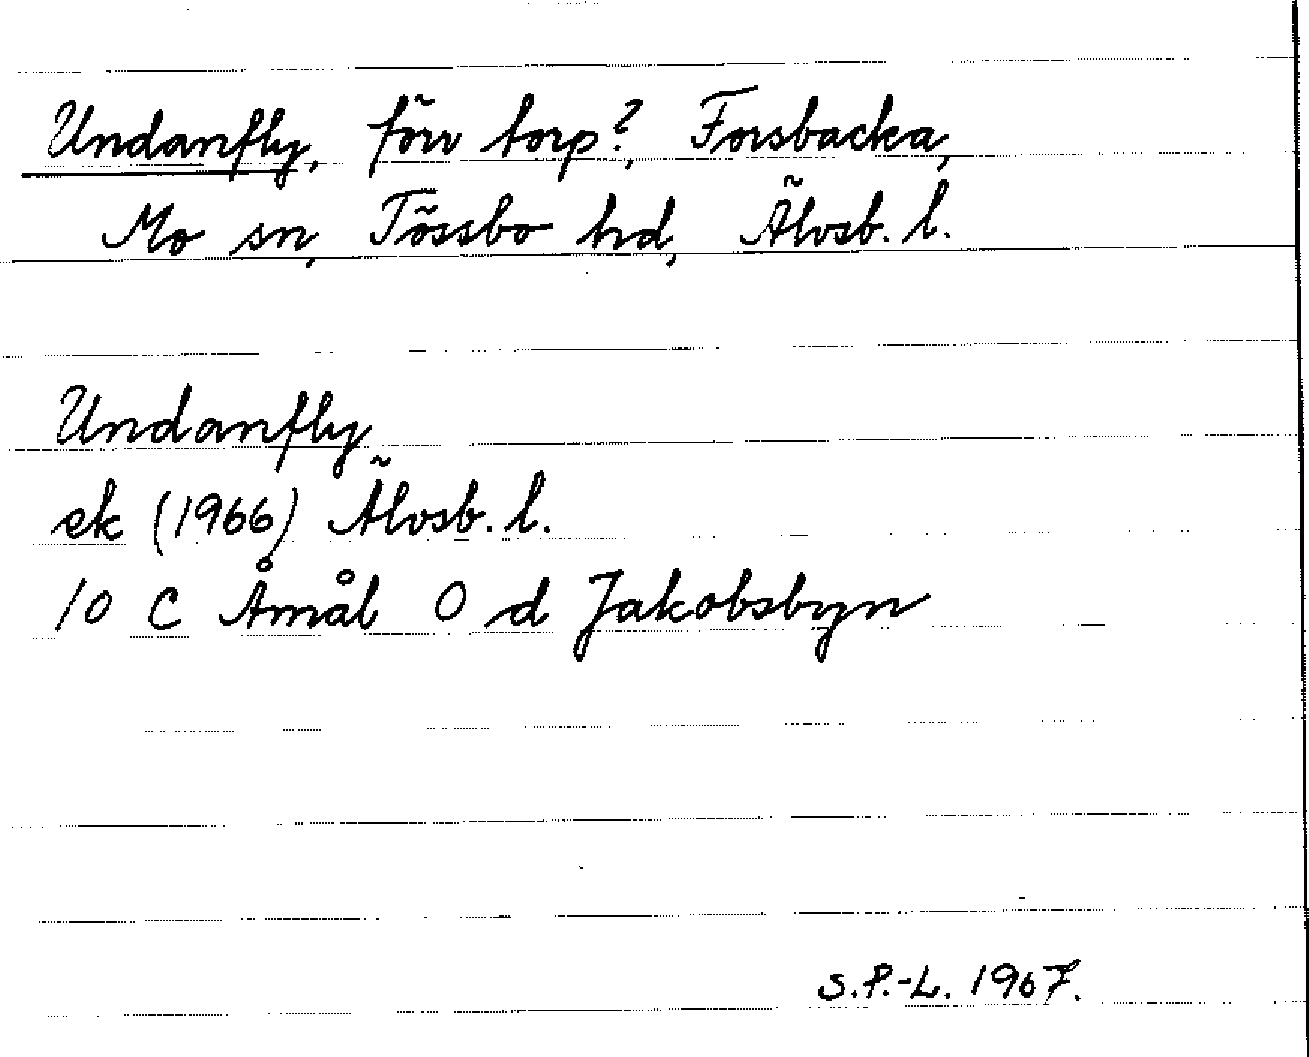 Undanfly, förr torp?, Forsbacka,
Mo sn, Tössbo hd, Älvsb. l.
Undanfly
ek (1966) Älvsb. l.
10 C Åmål O d Jakobsbyn
S.P.-L. 1967.